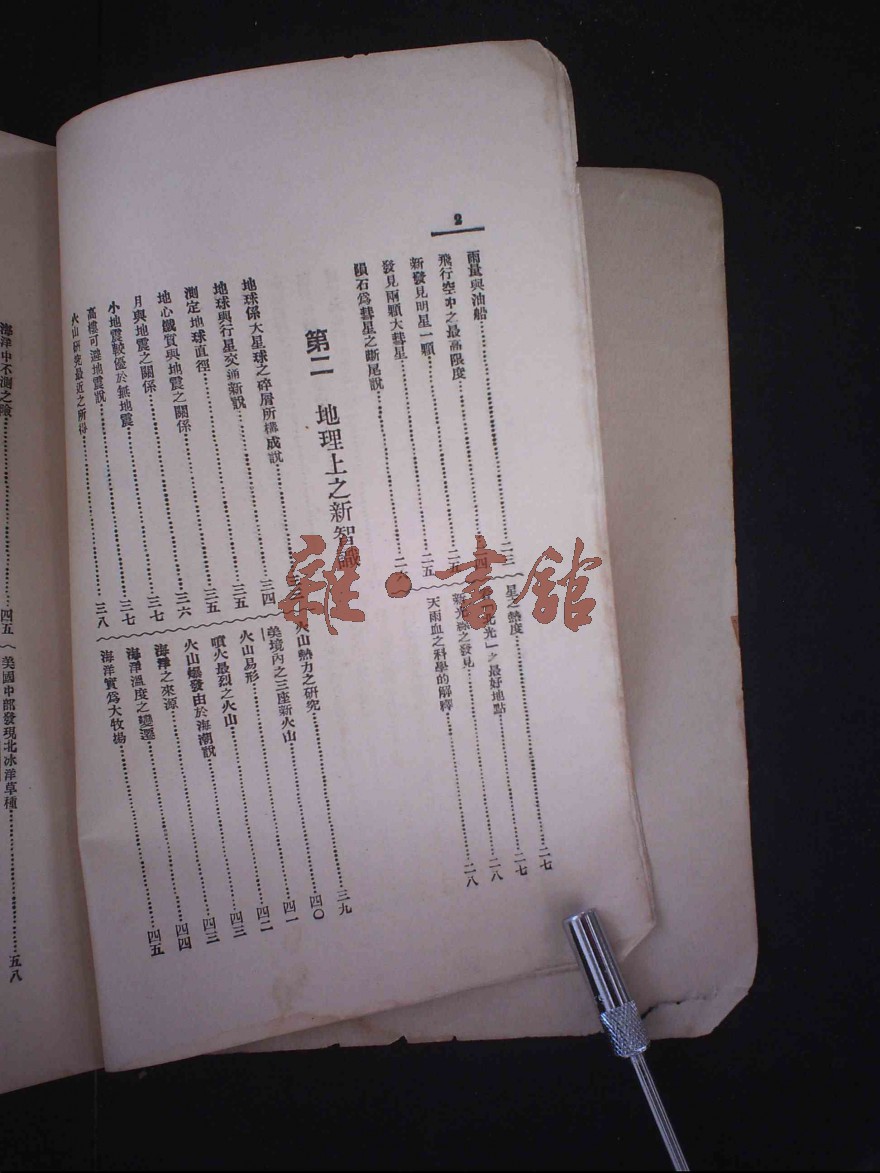 2
雨量與油船……二三
飛行空中之最高限度……二四
新發見明星一顆……二五
發見兩顆大彗星……二五
隕石爲彗星之斷尾說……二六
星之熱度……二七
「北光」之最好地點……二七
新光線之發見……二八
天雨血之科學的解釋……二八
第二 地理上之新智識
地球係大星球之碎屑所構成說……三三
地球與行星交通新說……三四
測定地球直徑……三五
地心鐵質與地震之關係……三五
月與地震之關係……三六
小地震較優於無地震……三七
高樓可避地震說……三七
火山研究最近之所得……三八
火山熱力之研究……三九
美境內之三座新火山……四〇
火山易形……四一
噴火最烈之火山……四二
火山爆發由於海潮說……四三
海洋之來源……四三
海洋溫度之變遷……四四
海洋實爲大牧場……四五
海洋中不測之險……四五
美國中部發現北冰洋草種……五八
雜·書館